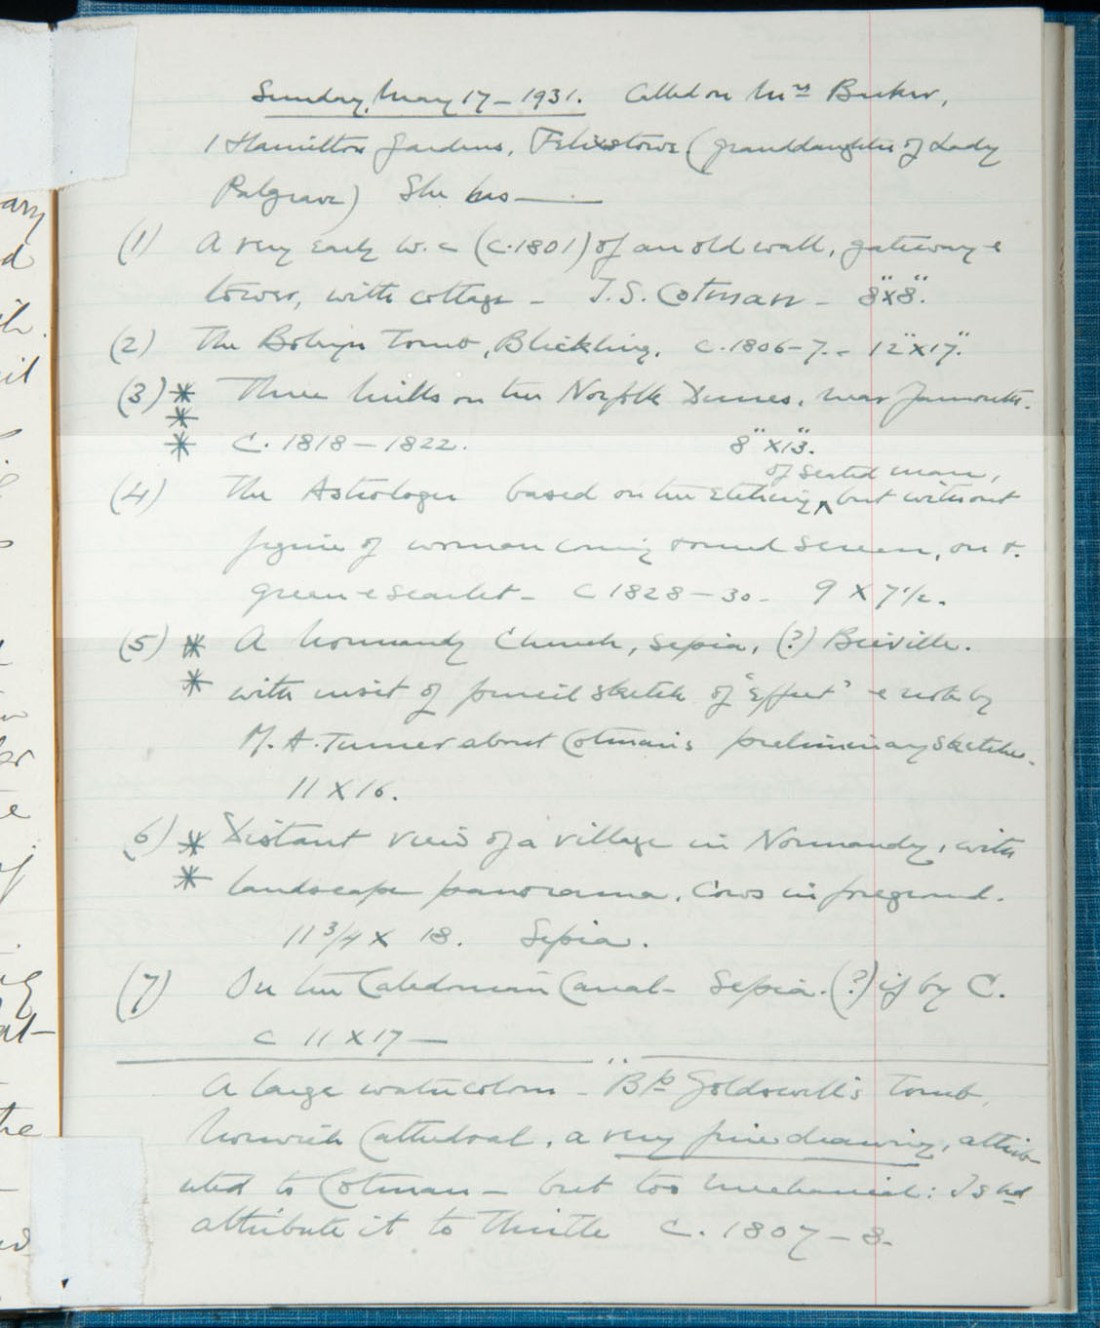 Sunday, May 17 – 1931. Called on Mrs Barker,
1 Hamilton Gardens, Felixstowe (granddaughter of Lady
Palgrave) She has —
(1) A very early w.c (c.1801) of an old wall, gateway &
tower, with cottage – J.S. Cotman – 8"x8".
(2) The Boleyn Tomb, Blickling. c.1806-7. – 12"x17".
(3) * Three mills on the Norfolk Dunes, near Yarmouth.
*
* C. 1818 – 1822. 8"x13".
of seated man,
(4) The Astrologer based on the etching ^ but without
figure of woman coming round screen, on r.
green & scarlet – C 1828 – 30 – 9 X 7 1/2.
(5) * A Normandy Church, sepia, (?) Bieville.
* with inset of pencil sketch of 'effect' & note by
M. A. Turner about Cotman's preliminary sketches.
11 X 16.
(6) * Distant view of a village in Normandy, with
* landscape panorama. Cows in foreground.
11 3/4 X 18. Sepia.
(7) On the Caledonian Canal – Sepia. (?) if by C.
c 11 X 17 —
A large watercolour – Bp Goldswell's Tomb,
Norwich Cathedral, a very fine drawing, attrib-
uted to Cotman – but too mechanical: I shd
attribute it to Thirtle C. 1807 – 8.